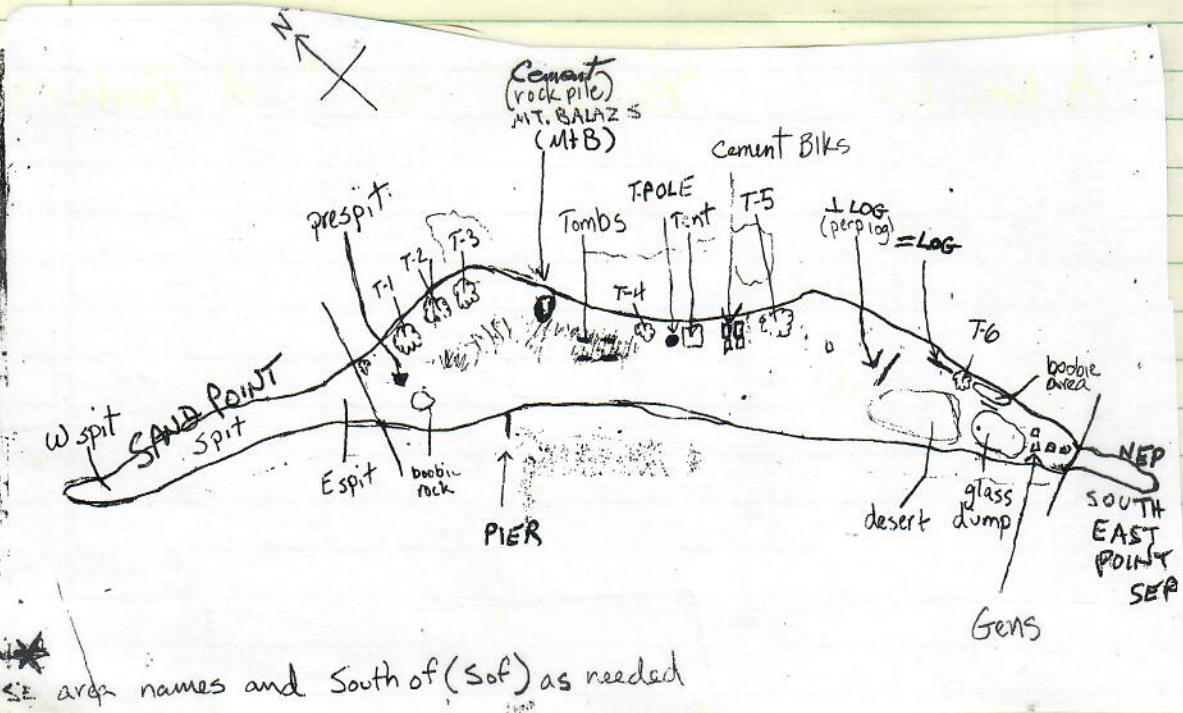 N
Cement
(rock pile)
MT. BALAZS
(MtB)
Cement Blks
prespit.
T-1
T-2
T-3
Tombs
T-4
T-POLE
Tent
T-5
⊥ LOG
(perp log)
= LOG
T-6
boobie
area
W spit
SAND POINT
Spit
E spit
boobie
rock
PIER
desert
glass
dump
Gens
NEP
SOUTH
EAST
POINT
SEP
area names and South of (Sof) as needed